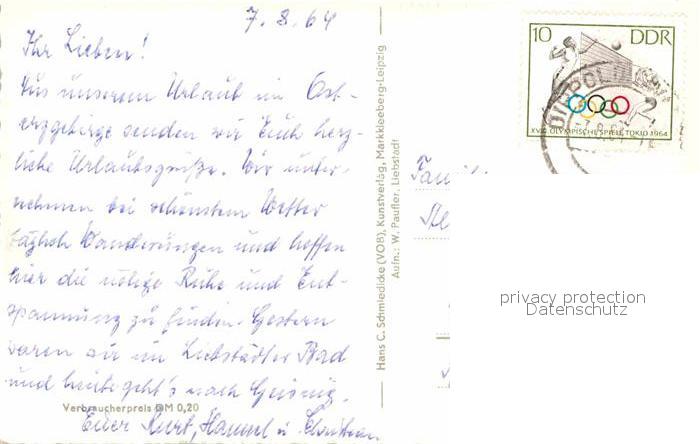 7. 8. 64
Ihr Lieben!
Aus unserem Urlaub im Ost-
erzgebirge senden wir Euch herz-
liche Urlaubsgrüße. Wir unter-
nehmen bei schönstem Wetter
täglich Wanderungen und hoffen
hier die nötige Ruhe und Ent-
spannung zu finden. Gestern
waren wir im Liebstädter Bad
und heute geht's nach Geising.
Euer Kurt, u. Christian
Verbraucherpreis DM 0,20
Hans C. Schmiedicke (VOB), Kunstverlag, Markkleeberg-Leipzig
Aufn.: W. Paufler, Liebstadt
10 DDR
XVIII. OLYMPISCHE SPIELE TOKIO 1964
privacy protection
Datenschutz